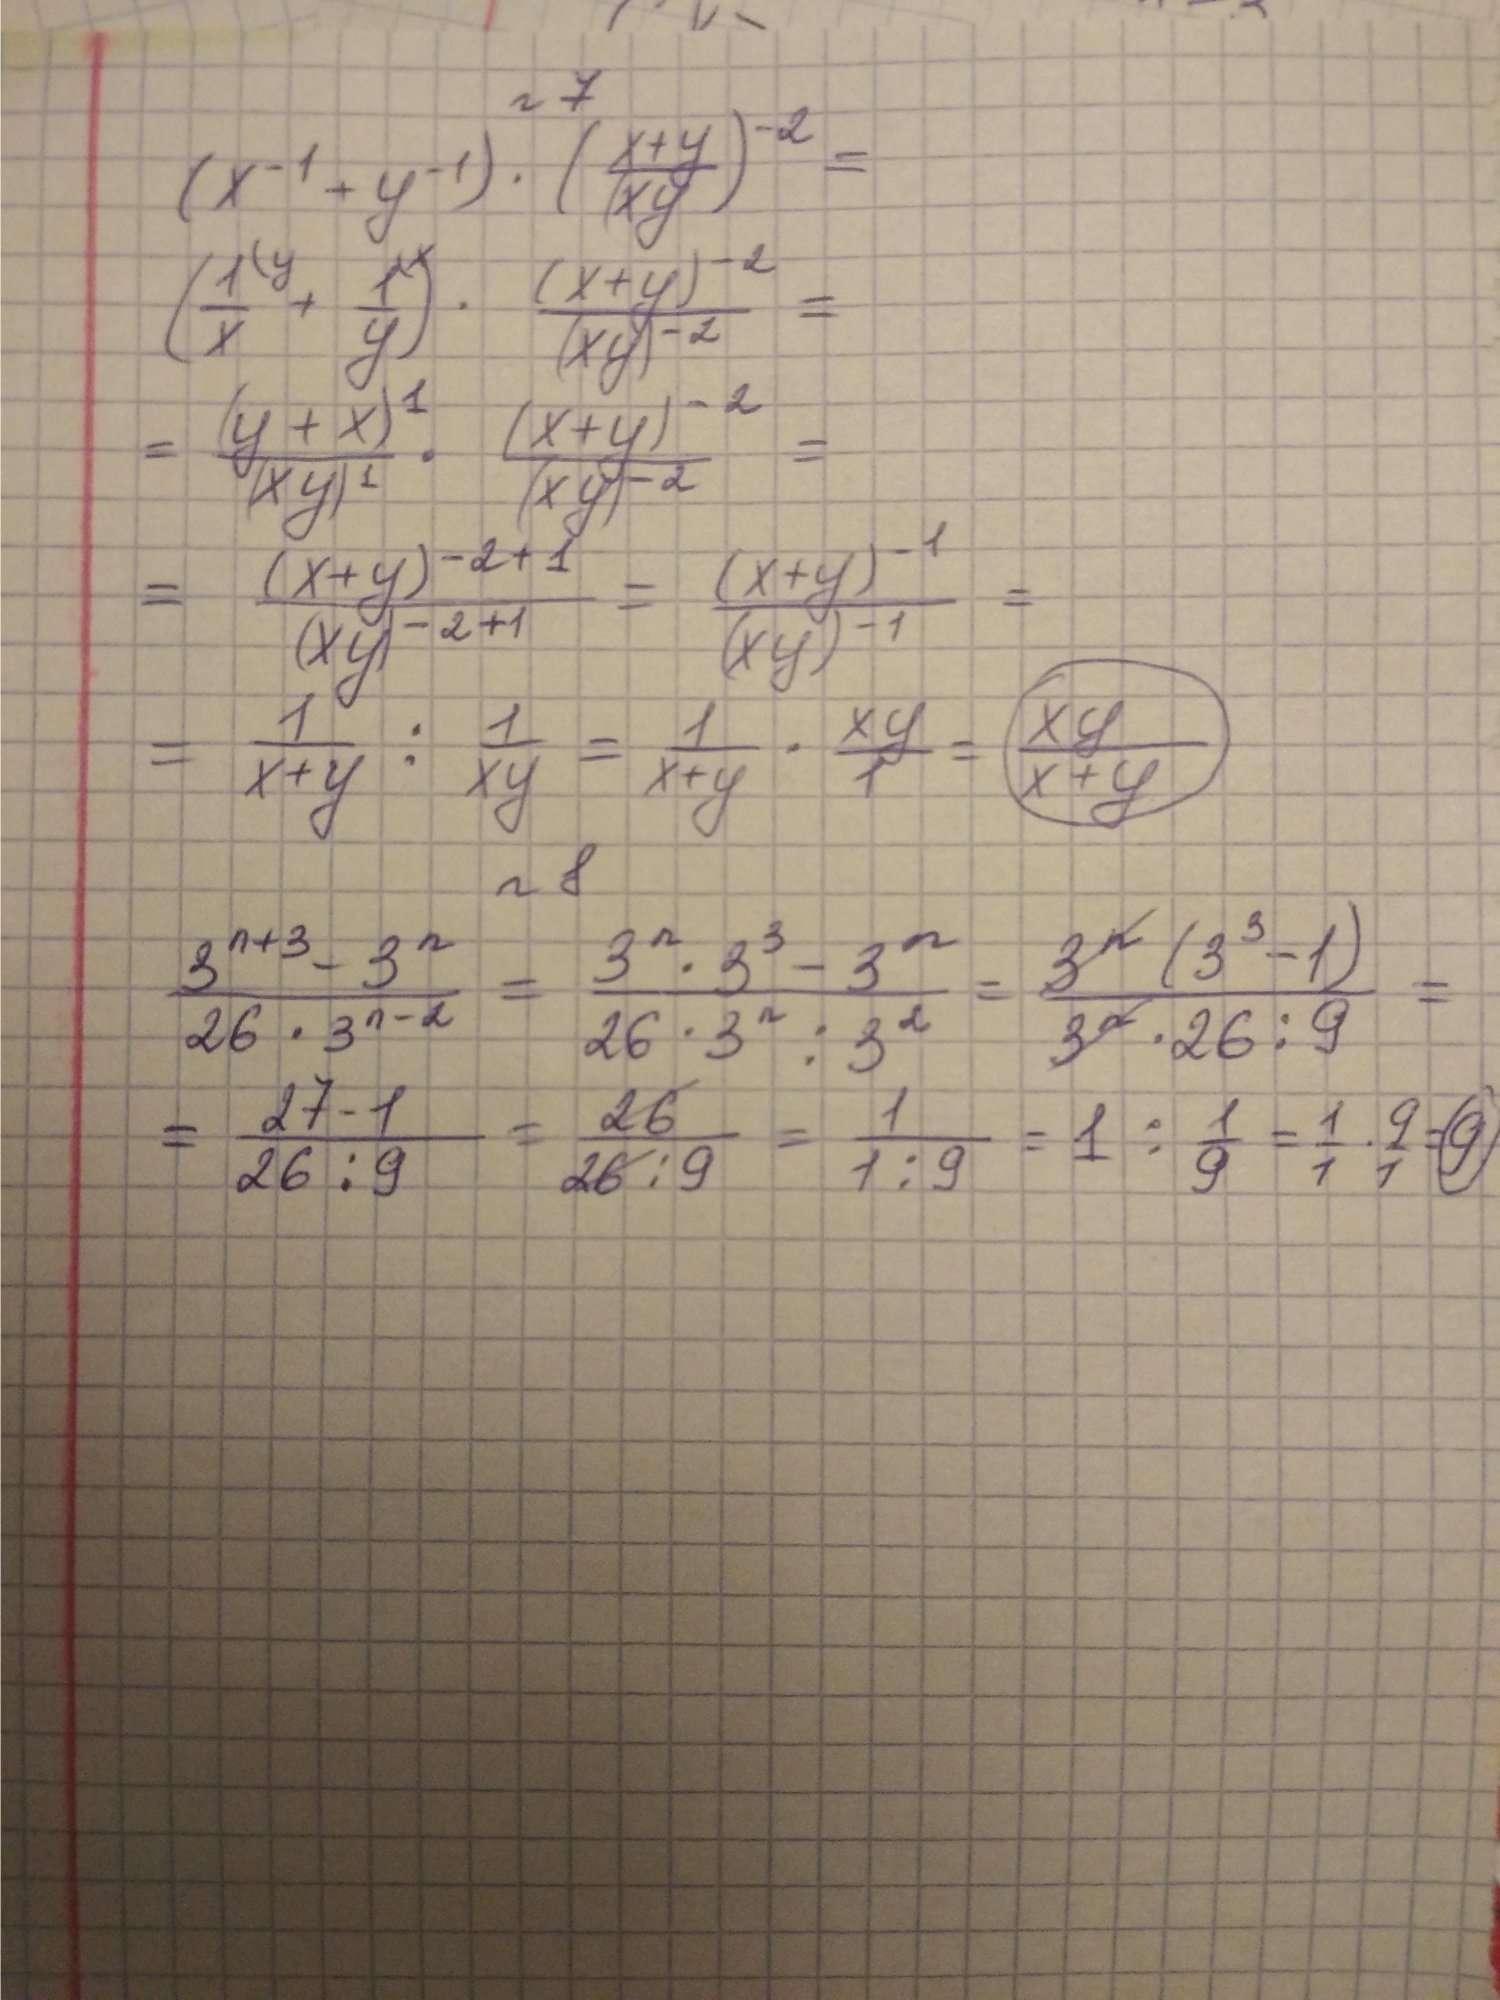 ~ 7
(x⁻¹ + y⁻¹) · ((x+y)/(xy))⁻² =
(1⁽ʸ/x + 1⁽ˣ/y) · (x+y)⁻²/(xy)⁻² =
= (y + x)¹/(xy)¹ · (x+y)⁻²/(xy)⁻² =
= (x+y)⁻²⁺¹/(xy)⁻²⁺¹ = (x+y)⁻¹/(xy)⁻¹ =
= 1/(x+y) : 1/(xy) = 1/(x+y) · xy/1 = xy/(x+y)
~ 8
(3ⁿ⁺³ - 3ⁿ)/(26 · 3ⁿ⁻²) = (3ⁿ · 3³ - 3ⁿ)/(26 · 3ⁿ : 3²) = 3ⁿ (3³ - 1)/(3ⁿ · 26 : 9) =
= (27 - 1)/(26 : 9) = 26/(26 : 9) = 1/(1 : 9) = 1 : 1/9 = 1/1 · 9/1 = 9